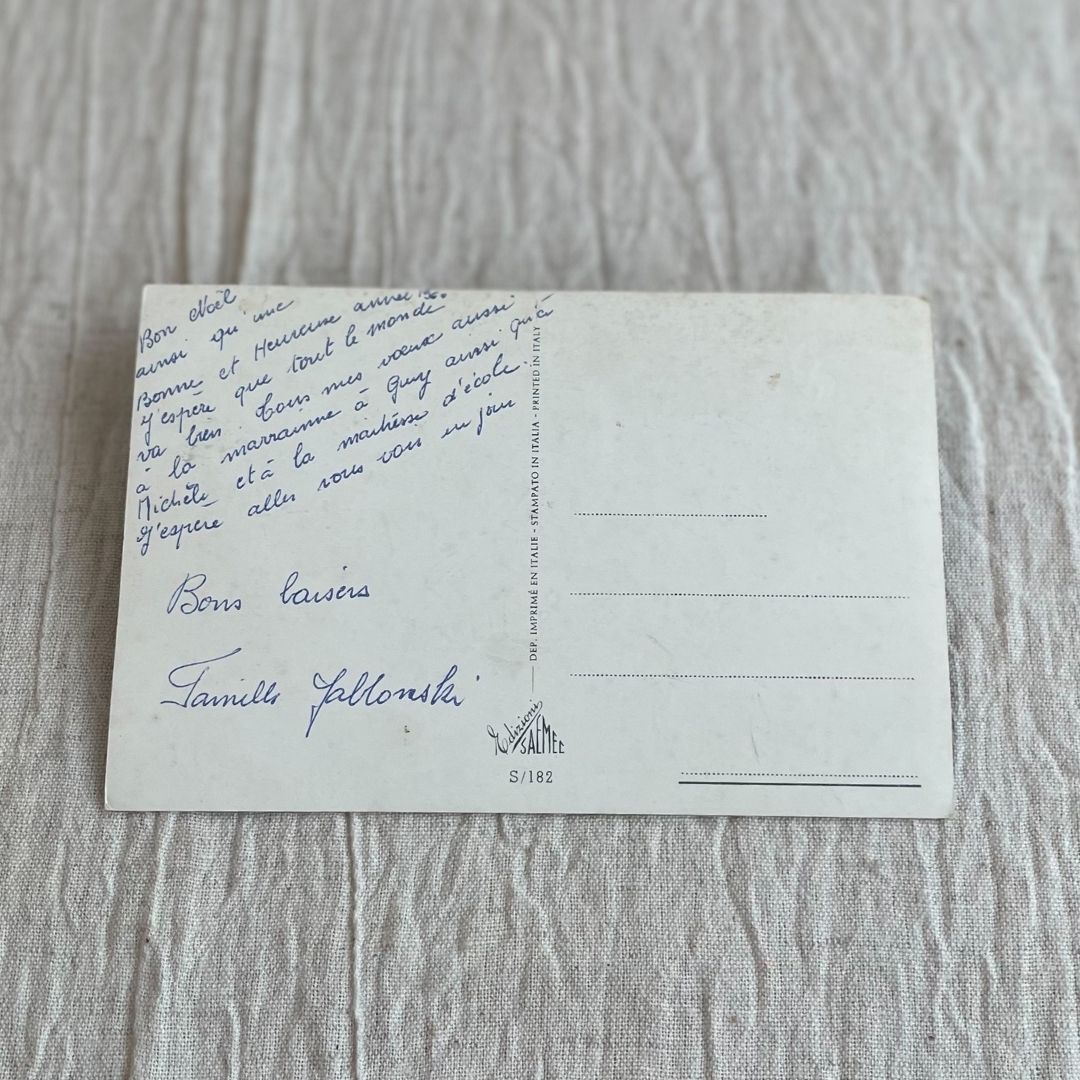 Bon Noël
ainsi qu'une
Bonne et Heureuse année
J'espère que tout le monde
va bien. Tous mes voeux aussi
à la marrainne à Guy aussi qu'à
Michèle et à la maitésse d'école.
J'espère aller vous voir un jour
Bons baisers
Famille Jablonski
DEP. IMPRIMÉ EN ITALIE - STAMPATO IN ITALIA - PRINTED IN ITALY
Edizioni
SAEMEC
S/182